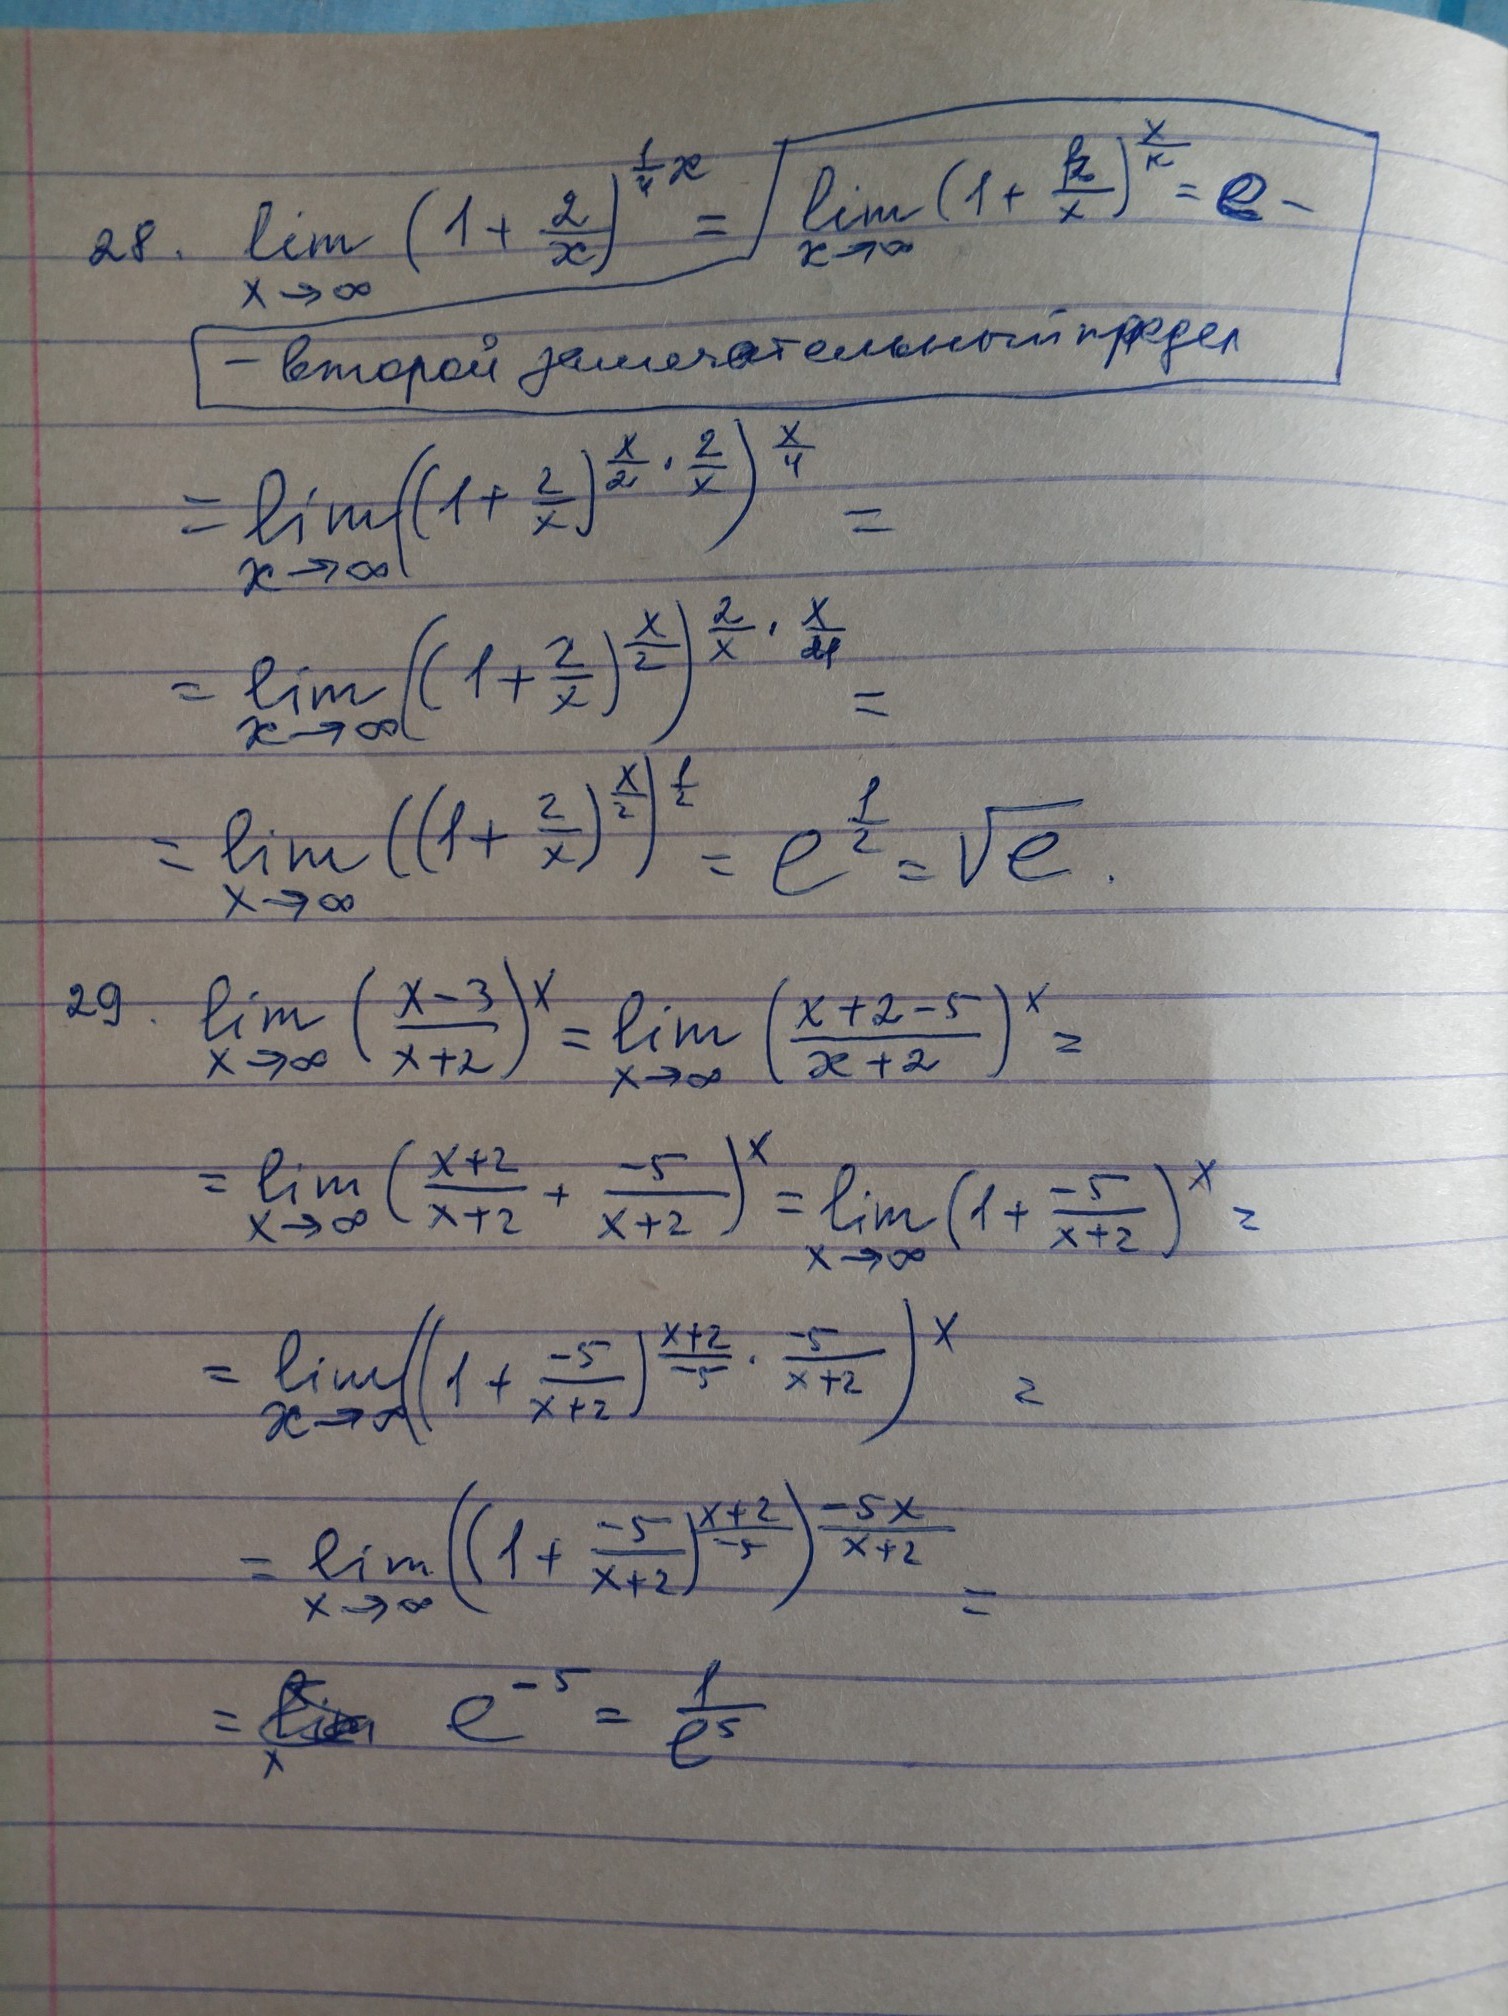 28. lim x→∞ (1 + 2/x)^(1/4 x) = lim x→∞ (1 + k/x)^(x/k) = e –
– второй замечательный предел
= lim x→∞ ((1 + 2/x)^(x/2 · 2/x))^(x/4) =
= lim x→∞ ((1 + 2/x)^(x/2))^(2/x · x/4) =
= lim x→∞ ((1 + 2/x)^(x/2))^(1/2) = e^(1/2) = √e.
29. lim x→∞ ((x-3)/(x+2))^x = lim x→∞ ((x+2-5)/(x+2))^x =
= lim x→∞ ((x+2)/(x+2) + (-5)/(x+2))^x = lim x→∞ (1 + (-5)/(x+2))^x =
= lim x→∞ ((1 + (-5)/(x+2))^((x+2)/(-5) · (-5)/(x+2)))^x =
= lim x→∞ ((1 + (-5)/(x+2))^((x+2)/(-5)))^((-5x)/(x+2)) =
= e^(-5) = 1/e^5